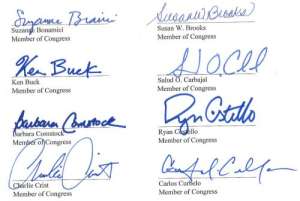 Suzanne Bonamici
Suzanne Bonamici
Member of Congress
Susan W Brooks
Susan W. Brooks
Member of Congress
Ken Buck
Ken Buck
Member of Congress
Salud O. Carbajal
Member of Congress
Barbara Comstock
Barbara Comstock
Member of Congress
Ryan Costello
Ryan Costello
Member of Congress
Charlie Crist
Charlie Crist
Member of Congress
Carlos Curbelo
Member of Congress